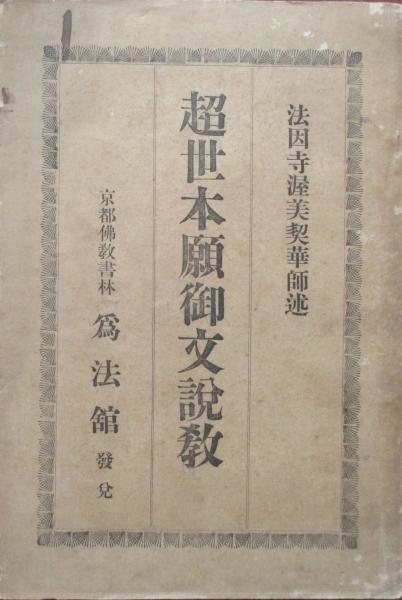 法因寺渥美契華師述
超世本願御文說教
京都佛教書林 爲法舘 發兌